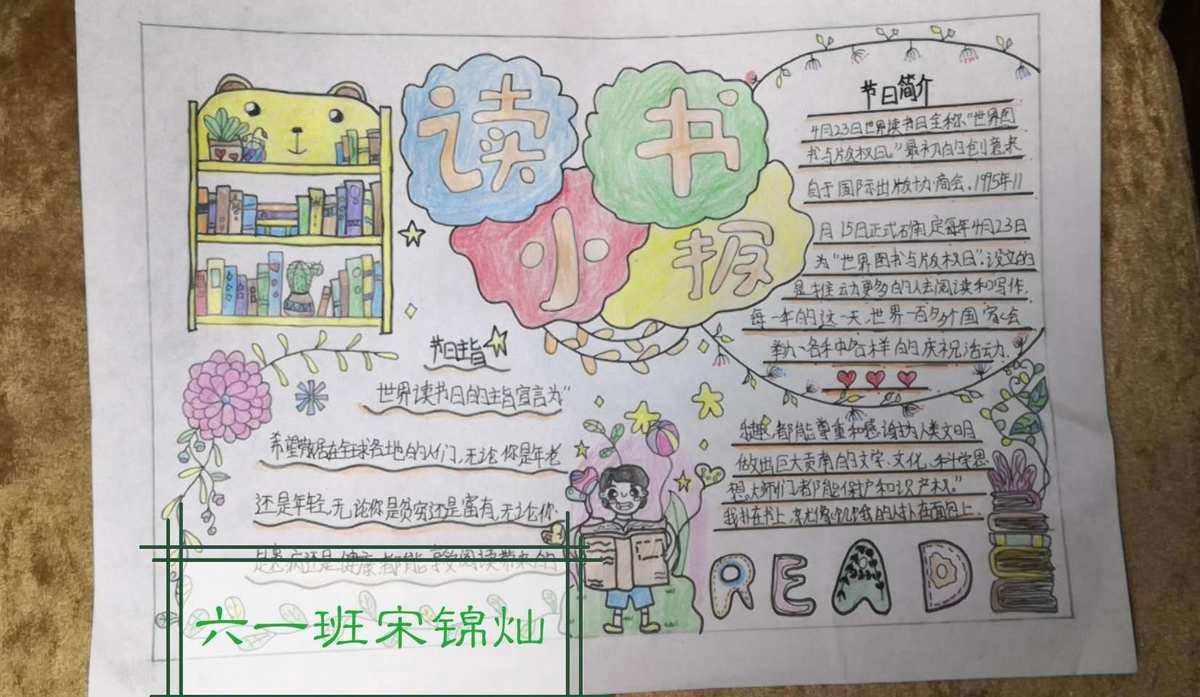 读书
小报
节日简介
4月23日世界读书日全称“世界图
书与版权日。”最初的创意来
自于国际出版协商会。1995年11
月15日正式确定每年4月23日
为“世界图书与版权日”，设立的
是推动更多的人去阅读和写作.
每一年的这一天，世界一百多个国家会
举办各种各样的庆祝活动.
节日主旨
世界读书日的主旨宣言为“
希望散居在全球各地的人们，无论你是年老
还是年轻，无论你是贫穷还是富有，无论你
是患病还是健康都能享受阅读带来的
乐趣，都能尊重和感谢为人类文明
做出巨大贡献的文学、文化、科学思
想大师们，都能保护知识产权。”
我扑在书上，就像饥饿的人扑在面包上.
READ
六一班宋锦灿